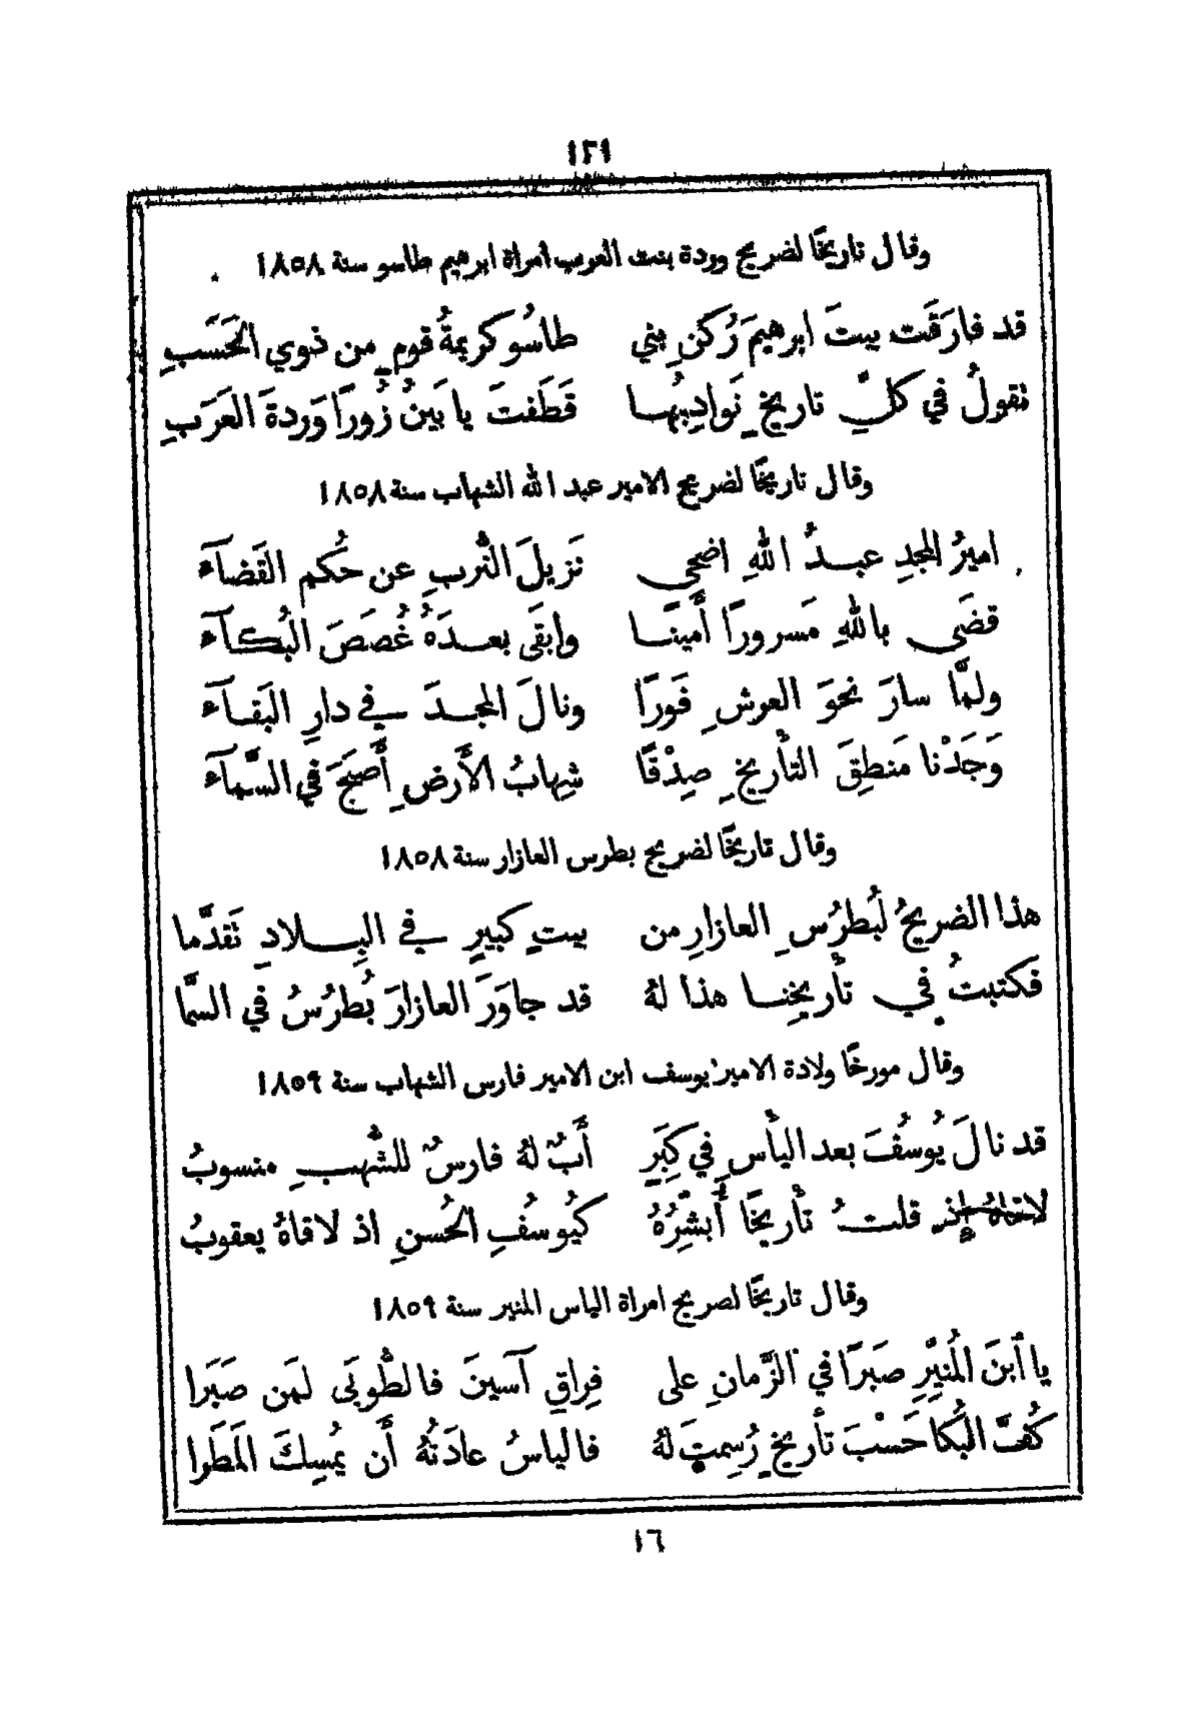 ١٢١
وقال تاريخًا لضريح وردة بنت العرب امراة ابرهيم طاسو سنة ١٨٥٨
قد فارَقَت بيتَ ابرهيمَ رُكنِ بني طاسُو كريمةُ قومٍ من ذوي الحَسَبِ
نقولُ في كلِّ تاريخٍ نَوادِبِهِا قَطَفتَ يا بَينُ زُورًا وَردةَ العَرَبِ
وقال تاريخًا لضريح الامير عبد الله الشهاب سنة ١٨٥٨
اميرُ المجدِ عبدُ اللهِ اضحى نَزيلَ التُربِ عن حُكمِ القَضآء
قضَى باللهِ مَسرورًا أَمينًا وابقَى بعدَهُ غُصَصَ البُكآء
ولمَّا سارَ نحوَ العرشِ فَورًا ونالَ المجدَ في دارِ البَقآء
وَجَدْنا مَنطِقَ التأريخِ صِدْقًا شِهابُ الأَرضِ أَصبَحَ في السَّمآء
وقال تاريخًا لضريح بطرس العازار سنة ١٨٥٨
هذا الضريحُ لبُطرُسِ العازارِ من بيتٍ كبيرٍ في البِلادِ تَقدَّما
فكتبتُ في تأريخِنا هذا لهُ قد جاوَرَ العازارَ بُطرُسُ في السَّما
وقال مورخًا ولادة الامير يوسف ابن الامير فارس الشهاب سنة ١٨٥٩
قد نالَ يُوسُفَ بعد اليأسِ في كِبَرٍ أَبٌ لهُ فارسٌ للشُّهبِ منسوبُ
لاقاهُ إذ قلتُ تأريخًا أُبشِّرُهُ كيُوسُفِ الحُسنِ اذ لاقاهُ يعقوبُ
وقال تاريخًا لصريح امراة الياس المنير سنة ١٨٥٩
يا ٱبنَ المُنيِّرِ صَبرًا في الزَّمانِ على فِراقِ آسينَ فالطُّوبَى لمَن صَبَرا
كُفَّ البُكا حَسْبَ تأريخٍ رُسِمتَ لهُ فالياسُ عادَتُهُ أَن يُمسِكَ المَطَرا
١٦